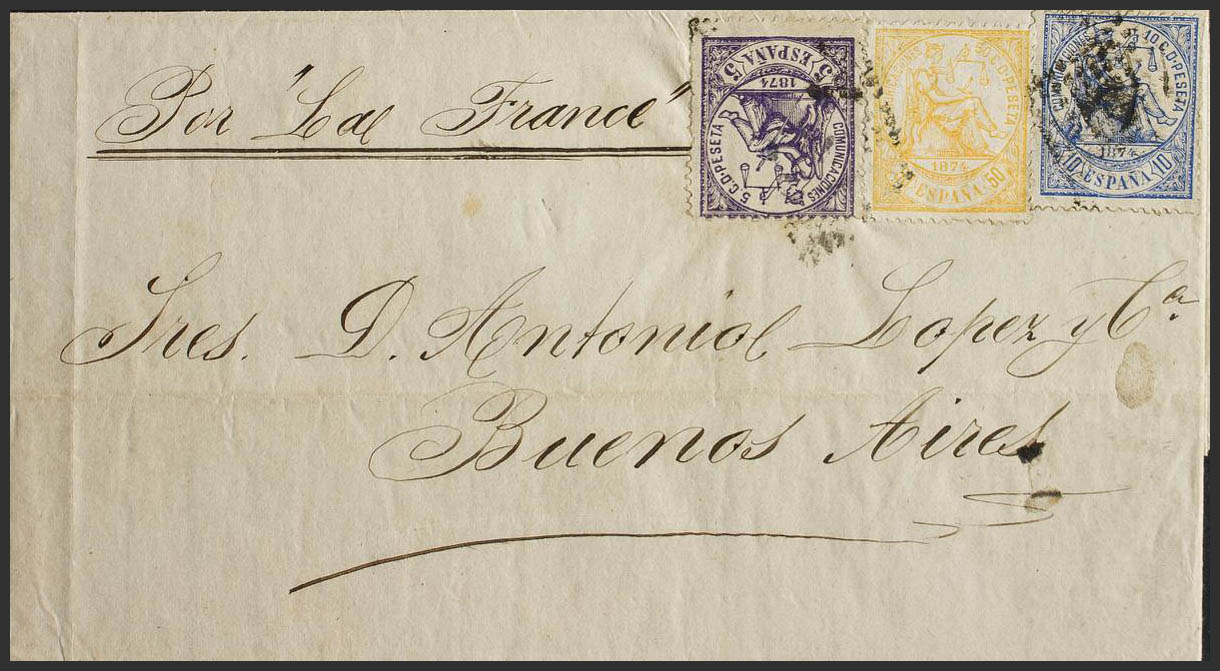 Por "La France"
5 ESPAÑA 5
1874
COMUNICACIONES
5 C. D. PESETA
COMUNICACIONES 50 C. D. PESETA
1874
ESPAÑA 50
COMUNICACIONES 10 C. D. PESETA
1874
10 ESPAÑA 10
Sres. D. Antonio Lopez y Cª
Buenos Aires